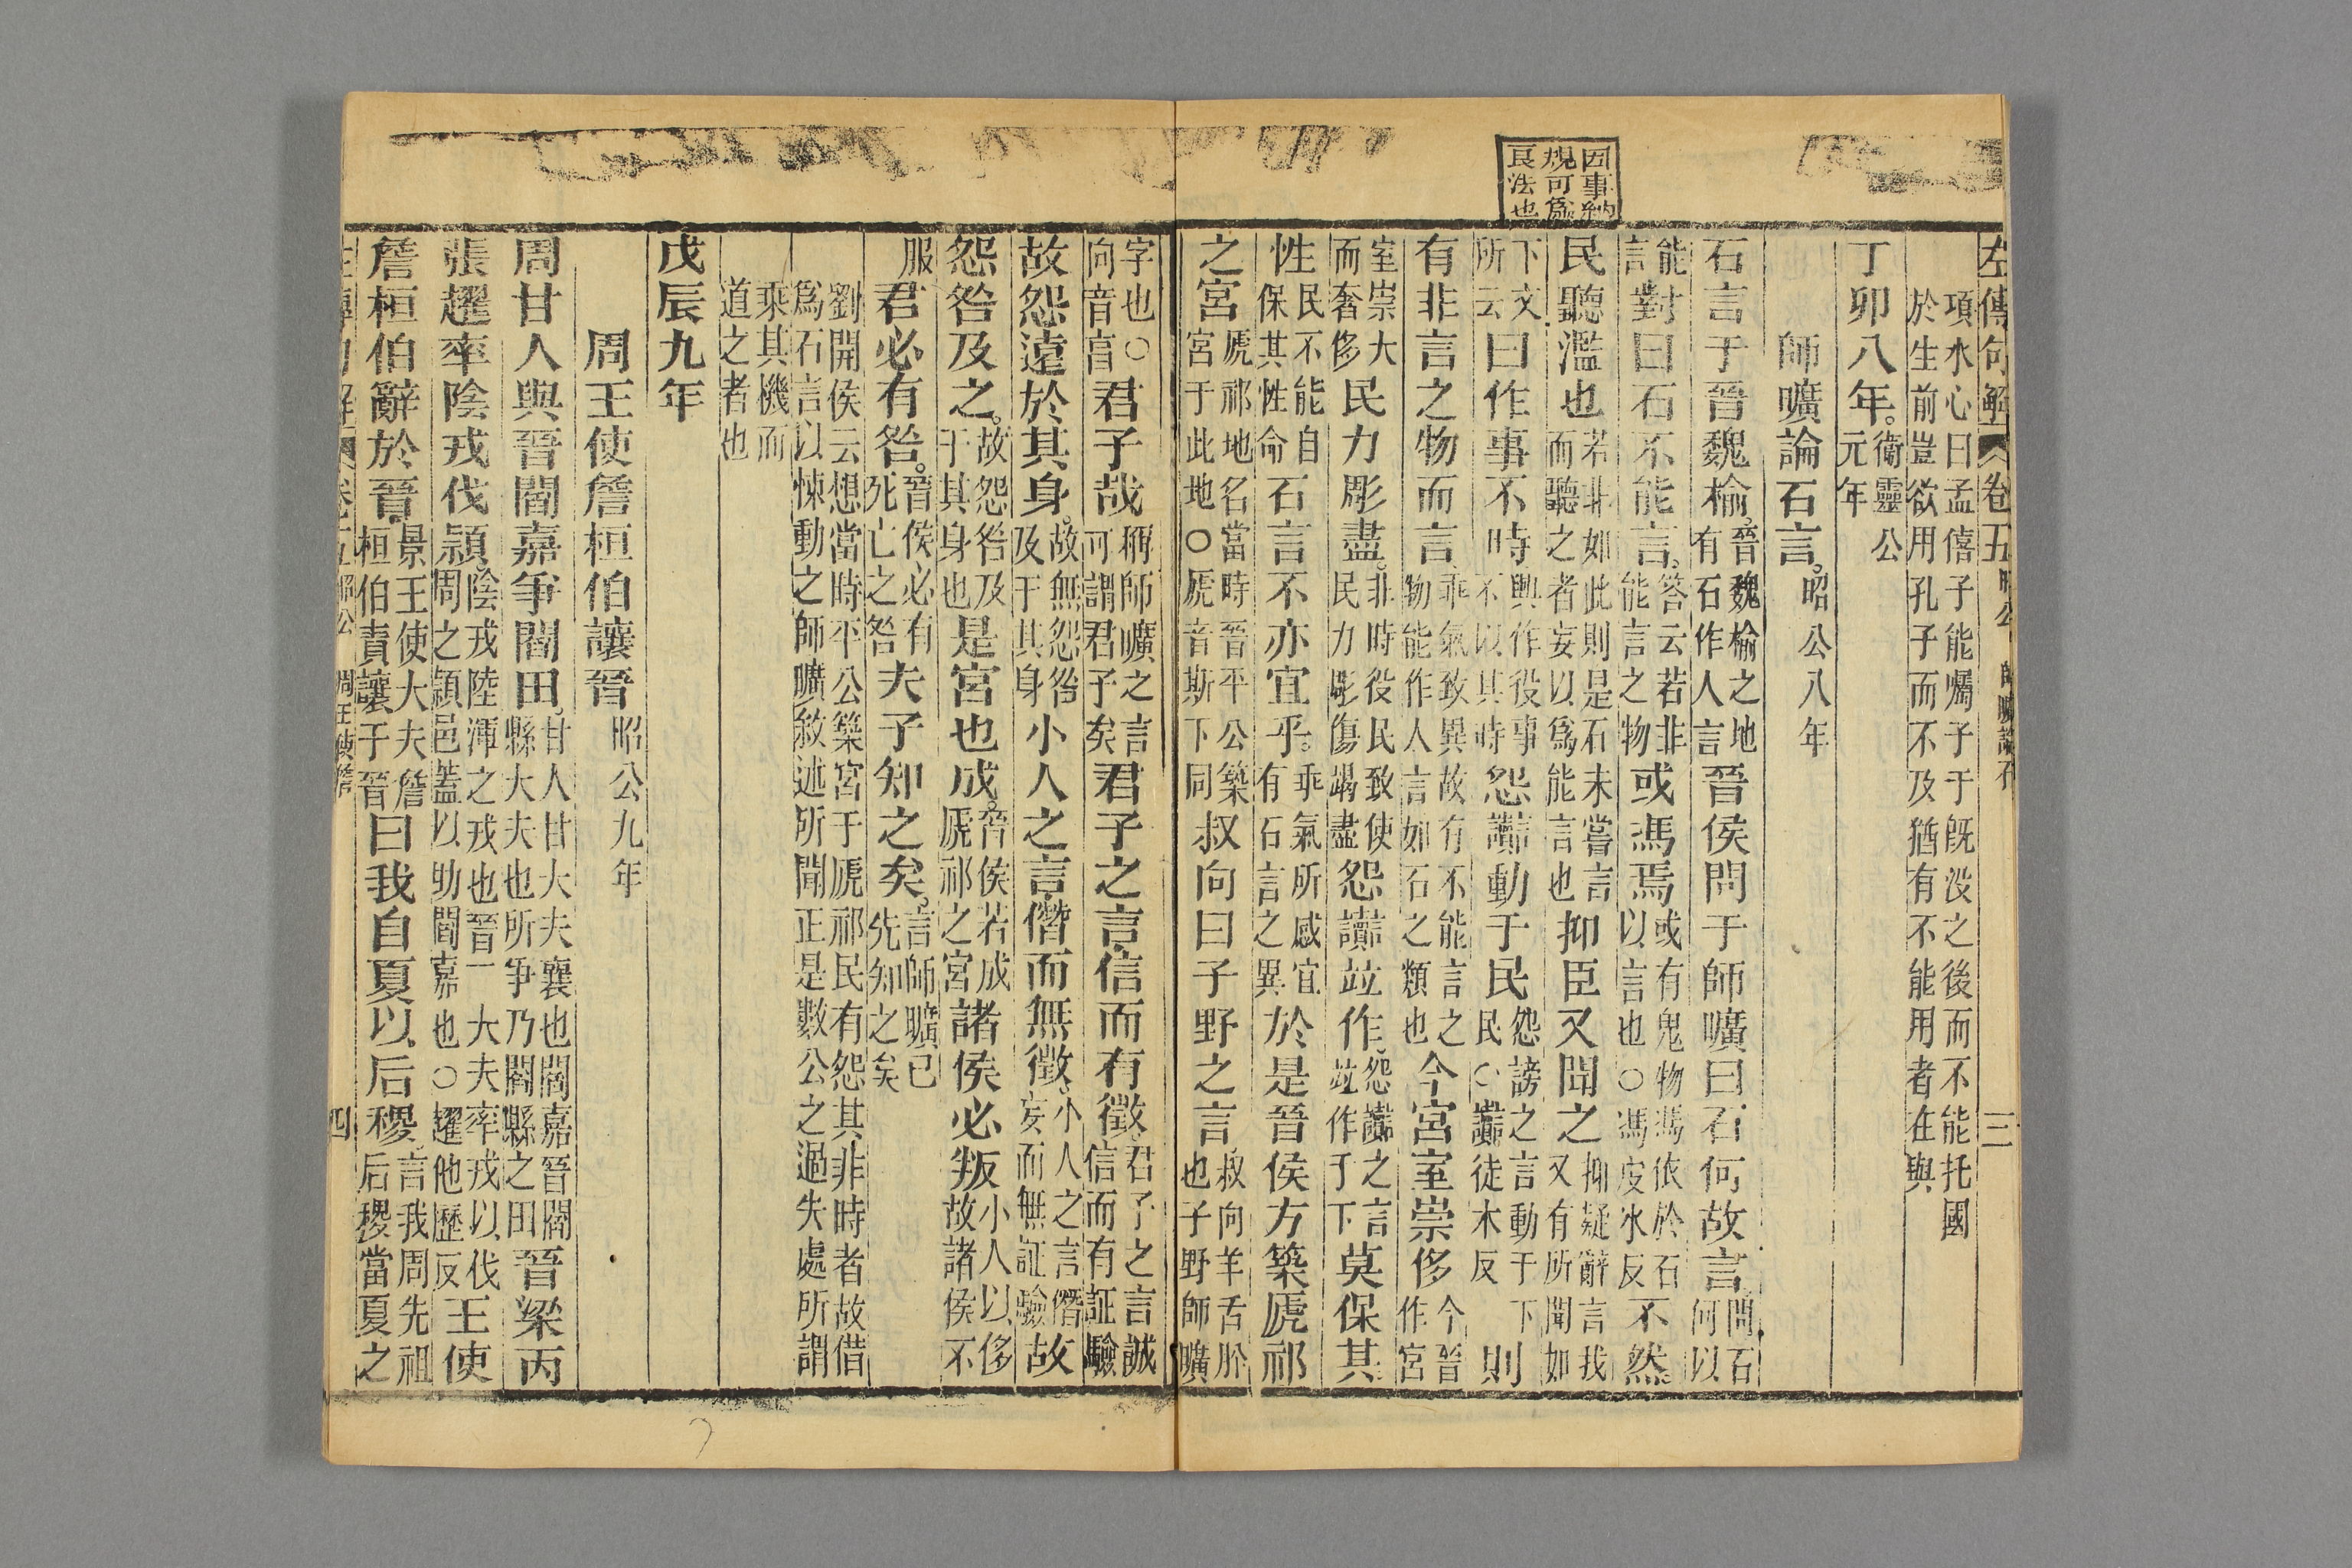 因事納
規可為
良法也
左傳句解 卷五 昭公 師曠論石 三
項水心曰孟僖子能屬子于旣没之後而不能托國
於生前豈欲用孔子而不及猶有不能用者在與
丁卯八年衛靈公元年
師曠論石言昭公八年
石言于晉魏榆晉魏榆之地有石作人言晉侯問于師曠曰石何故言問石何以
能言對曰石不能言答云若非能言之物或馮焉或有鬼物馮依於石以言也○馮皮氷反不然
民聽濫也若非如此則是石未嘗言而聽之者妄以爲能言也抑臣又聞之抑疑辭言我又有所聞如
下文所云曰作事不時興作役事不以其時怨讟動于民怨謗之言動于下民○讟徒木反則
有非言之物而言乖氣致異故有不能言之物能作人言如石之類也今宮室崇侈今晉作宮
室崇大而奢侈民力彫盡非時役民致使民力彫傷竭盡怨讟竝作怨讟之言竝作于下莫保其
性民不能自保其性命石言不亦宜乎乖氣所感宜有石言之異於是晉侯方築虒祁
之宮虒祁地名當時晉平公築宮于此地○虒音斯下同叔向曰子野之言叔向羊舌肸也子野師曠
字也○向音亯君子哉稱師曠之言可謂君子矣君子之言信而有徵君子之言誠信而有証驗
故怨遠於其身故無怨咎及于其身小人之言僭而無徵小人之言僭妄而無証驗故
怨咎及之故怨咎及于其身也是宮也成晉侯若成虒祁之宮諸侯必叛小人以侈故諸侯不
服君必有咎晉侯必有死亡之咎夫子知之矣言師曠已先知之矣
劉開侯云想當時平公築宮于虒祁民有怨其非時者故借
爲石言以悚動之師曠敘述所聞正是數公之過失處所謂
乘其機而
道之者也
戊辰九年
周王使詹桓伯讓晉昭公九年
周甘人與晉閻嘉爭閻田甘人甘大夫襄也閻嘉晉閻縣大夫也所爭乃閻縣之田晉梁丙
張趯率陰戎伐潁陰戎陸渾之戎也晉二大夫率戎以伐周之潁邑蓋以助閻嘉也○趯他歷反王使
詹桓伯辭於晉景王使大夫詹桓伯責讓于晉曰我自夏以后稷言我周先祖后稷當夏之
左傳句解 卷五 昭公 周王使詹 四